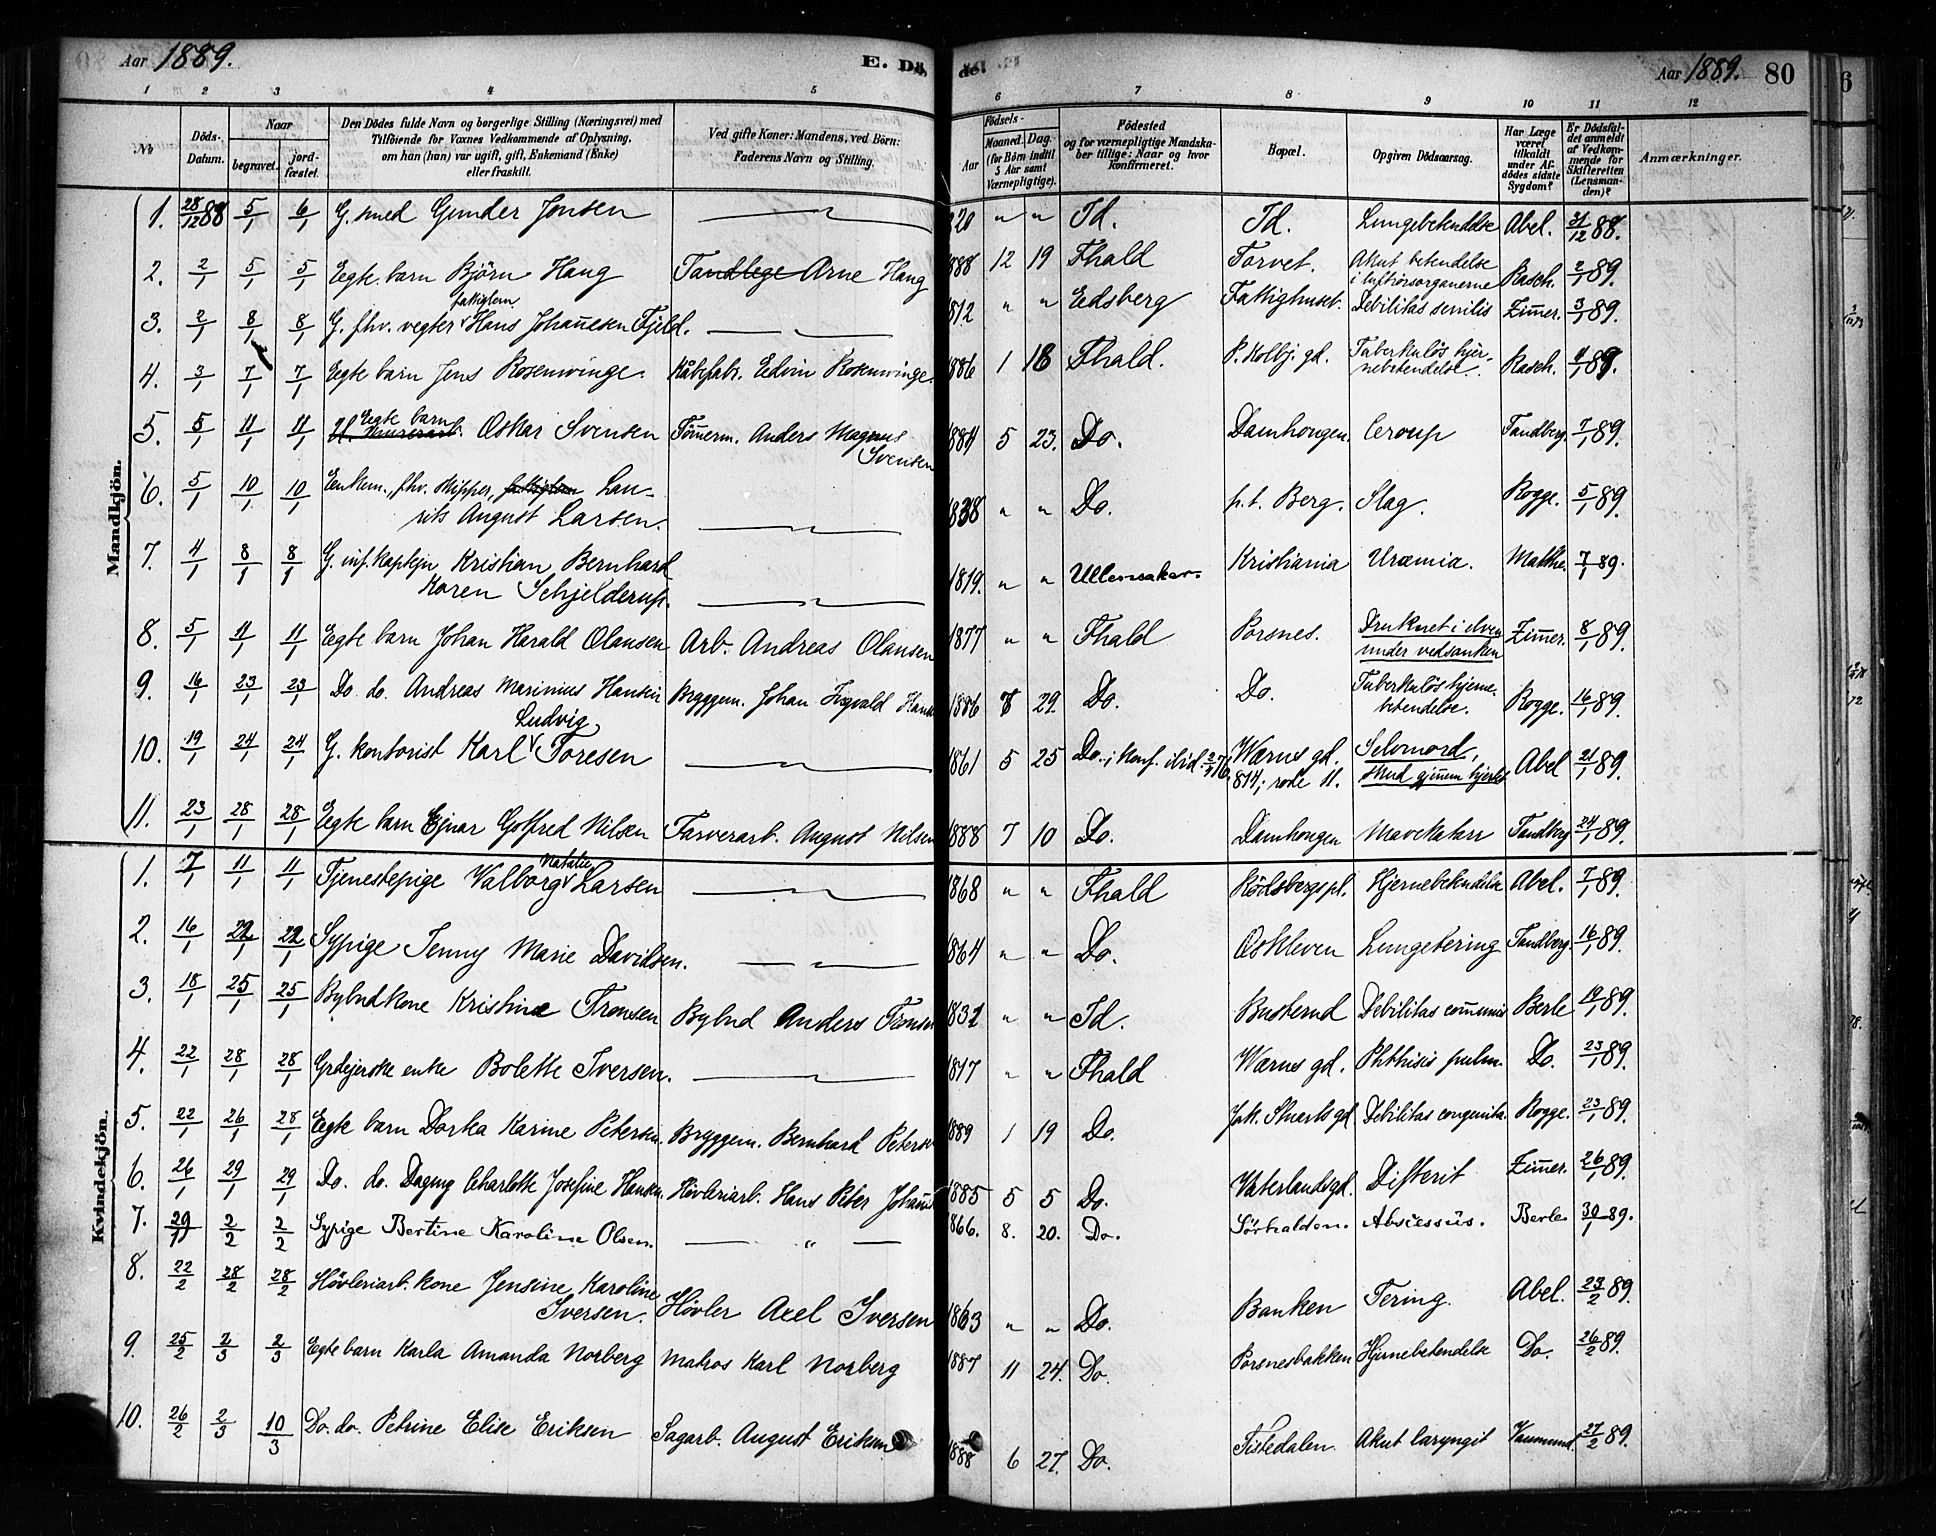 Aar 1889. E. Dö, de. Aar 1889. 80
1 2 3 4 5 6 7 8 9 10 11 12
No Döds-Datum. Naar begravet. jordfæstet. Den Dödes fulde Navn og borgerlige Stilling (Næringsvei) med Tilföiende for Voxnes Vedkommende af Oplysning, om han (hun) var ugift, gift, Enkemand (Enke) eller fraskilt. Ved gifte Koner: Mandens, ved Börn: Faderens Navn og Stilling. Födsels- Aar Maaned. Dag. (for Börn indtil 5 Aar samt Værnepligtige). Födested og for værnepligtige Mandskaber tillige: Naar og hvor konfirmeret. Bopæl. Opgiven Dödsaarsag. Har Læge været tilkaldt under Afdödes sidste Sygdom? Er Dödsfaldet anmeldt af Vedkommende for Skifteretten (Lensmanden)? Anmærkninger.
Mandkjön.
1. 28/12 88 5/1 6/1 G. smed Gunder Jonsen — 820 " " Id. Id. Lungebetændelse Abel. 31/12 88.
2. 2/1 5/1 5/1 Egte barn Björn Haug Tandlege Arne Haug 1888 12 19 Fhald Torvet. Akut betendelse i luftrörsorganerne Rasch. 2/1 89.
3. 2/1 8/1 8/1 G. fhv. vegter fattiglem Hans Johannesen Fjeld. — 1812 " " Eidsberg Fattighuset. Debilitas senilis Zimmer. 3/1 89.
4. 3/1 7/1 7/1 Egte barn Jens Rosenvinge. Kåbefabr. Edvin Rosenvinge. 1886 1 18 Fhald. P. Kolbj. gd. Tuberkulös hjernebetendelse. Rasch. 4/1 89.
5. 5/1 11/1 11/1 Egte barn Oskar Svensen Tömerm. Anders Magnus Svensen 1884 5 23. Do. Damhougen. Croup Tandberg. 7/1 89.
6. 5/1 10/1 10/1 Enkem., fhv. skipper, fattiglem Laurits August Larsen. — 1838 " " Do. p.t. Berg. Slag. Rogge. 5/1 89.
7. 4/1 8/1 8/1 G. inf. kaptejn Kristian Bernhard Koren Schjelderup. — 1819. " " Ullensaker. Kristiania Uræmia. Malthe. 7/1 89.
8. 5/1 11/1 11/1 Egte barn Johan Harald Olausen Arb. Andreas Olausen 1877 " " Fhald Porsnes. Druknet i elven under vedsanken Zimmer. 8/1 89.
9. 16/1 23/1 23/1 Do do. Andreas Marinius Hansen Bryggem. Johan Ingvald Hans 1886 8 29. Do. Do. Tuberkulös hjernebetendelse. Rogge. 16/1 89.
10. 19/1 24/1 24/1 G. kontorist Karl Ludvig Toresen — 1861 5 25 Do.; konf. ibid. 2/4 76. Wærns gd. 814; rode 11. Selvmord, skud gjennem hjertet Abel 21/1 89.
11. 23/1 28/1 28/1 Egte barn Ejnar Gotfred Nilsen Farverarb. August Nilsen 1888 7 10 Do. Damhougen Mavekatarr Tandberg 24/1 89.
Kvindekjön.
1. 7/1 11/1 11/1 Tjenestepige Valborg Natalie Larsen — 1868 " " Fhald Rödsbergspl. Hjernebetændelse Abel. 7/1 89.
2. 16/1 22/1 22/1 Sypige Jenny Marie Davidsen. — 1864 " " Do. Oskleven Lungetæring Tandberg. 16/1 89.
3. 18/1 25/1 25/1 Bybudkone Kristine Tronsen Bybud Anders Tronsen 1832 " " Id. Busterud Debilitas communis Berle 19/1 89.
4. 22/1 28/1 28/1 Grdejerske enke Bolette Iversen. — 1817 " " Fhald Wærns gd. Phthisis pulm. Do. 23/1 89.
5. 22/1 26/1 28/1 Egte barn Dorka Karine Petersen. Bryggem. Bernhard Petersen 1889 1 19 Do. Jak. Stuarts gd. Debilitas congenita. Rogge. 23/1 89.
6. 26/1 29/1 29/1 Do. do. Dagny Charlotte Josefine Hansen. Hövleriarb. Hans Peter Johanns 1885 5 5 Do. Vaterlandsgd. Difterit Zimmer. 26/1 89.
7. 29/1 2/2 2/2 Sypige Bertine Karoline Olsen. — " — 866. 8. 20. Do. Sörhalden. Abscessus. Berle 30/1 89.
8. 22/2 28/2 28/2 Hövleriarb. kone Jensine Karoline Iversen. Hövler Axel Iversen 1863 " " Do. Banken Tering. Abel. 23/2 89.
9. 25/2 2/3 2/3 Egte barn Karla Amanda Norberg Matros Karl Norberg 1887 11 24. Do. Porsnesbakken Hjernebetendelse Do. 26/2 89.
10. 26/2 2/3 10/3 Do. do. Petrine Elise Eriksen Sagarb. August Eriksen 1888 6 27. Do. Tistedalen. Akut laryngit 27/2 89.